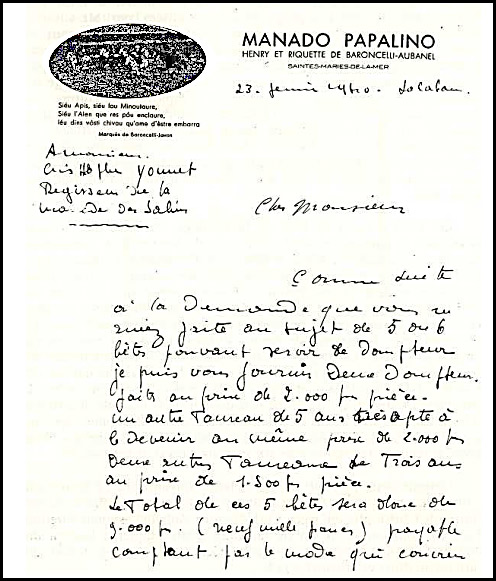 MANADO PAPALINO
HENRY ET RIQUETTE DE BARONCELLI-AUBANEL
SAINTES-MARIES-DE-LA-MER
23. 
Siéu Apis, siéu lou Minoutaure,
Siéu l'Alen que res pòu enclaure,
Iéu dins vòsti chivau qu'ame d'èstre embarra
Marquès de Baroncelli-Javon
A monsieur
Yonnet
Regisseur de la
des Salins
Cher Monsieur
Comme suite
à la Demande que vous
aviez faite au sujet de 5 ou 6
bêtes pouvant servir de Dompteur
je puis vous fournir Deux Dompteur.
faits au prix de 2.000 frs pièce.
un autre Taureau de 5 ans très apte à
le Devenir au même prix de 2.000 frs
Deux autres Taureaux de Trois ans
au prix de 1.500 frs pièce.
Le Total de ces 5 bêtes sera donc de
9.000 frs. (neuf mille francs) payable
comptant par le mode qui